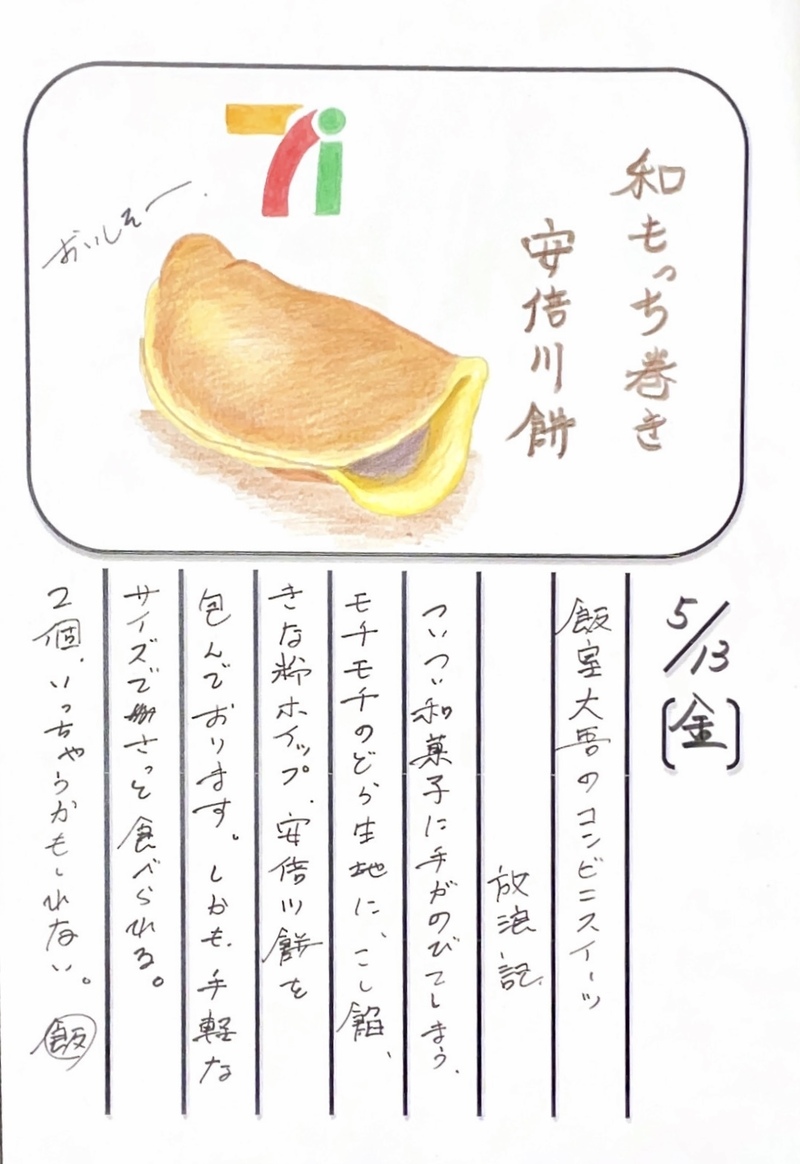 和もっち巻き
安倍川餅
おいしそー
7i
5/13
[金]
飯室大吾のコンビニスイーツ
放浪記
ついつい和菓子に手がのびてしまう。
モチモチのどら生地に、こし餡、
きな粉ホイップ、安倍川餅を
包んでおります。しかも、手軽な
サイズでさっと食べられる。
2個、いっちゃうかもしれない。 飯